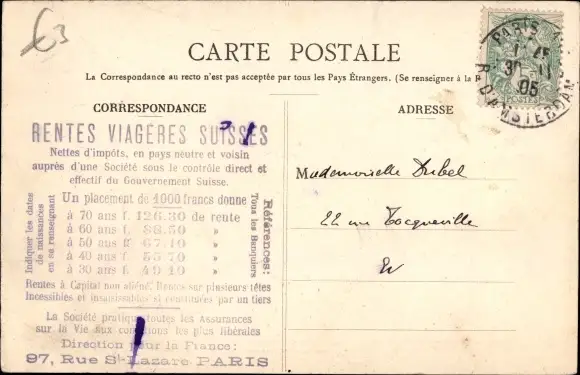 €3
CARTE POSTALE
La Correspondance au recto n'est pas acceptée par tous les Pays Étrangers. (Se renseigner à la
CORRESPONDANCE
ADRESSE
PARIS
30 11
05
R. D'AMSTERDAM
POSTES
RENTES VIAGÈRES SUISSES
Nettes d'impôts, en pays neutre et voisin
auprès d'une Société sous le contrôle direct et
effectif du Gouvernement Suisse.
Indiquer les dates
de naissances
en se renseignant
Un placement de 1000 francs donne
à 70 ans f. 126.30 de rente
à 60 ans f. 88.50 "
à 50 ans f. 67.10 "
à 40 ans f. 55.70 "
à 30 ans f. 49.10 "
Références:
Tous les Banquiers
Rentes à Capital non aliéné. Rentes sur plusieurs têtes
Incessibles et insaisissables si constituées par un tiers
La Société pratique toutes les Assurances
sur la Vie aux conditions les plus libérales
Direction pour la France:
97, Rue St-Lazare PARIS
Mademoiselle Dubel
22 rue Tocqueville